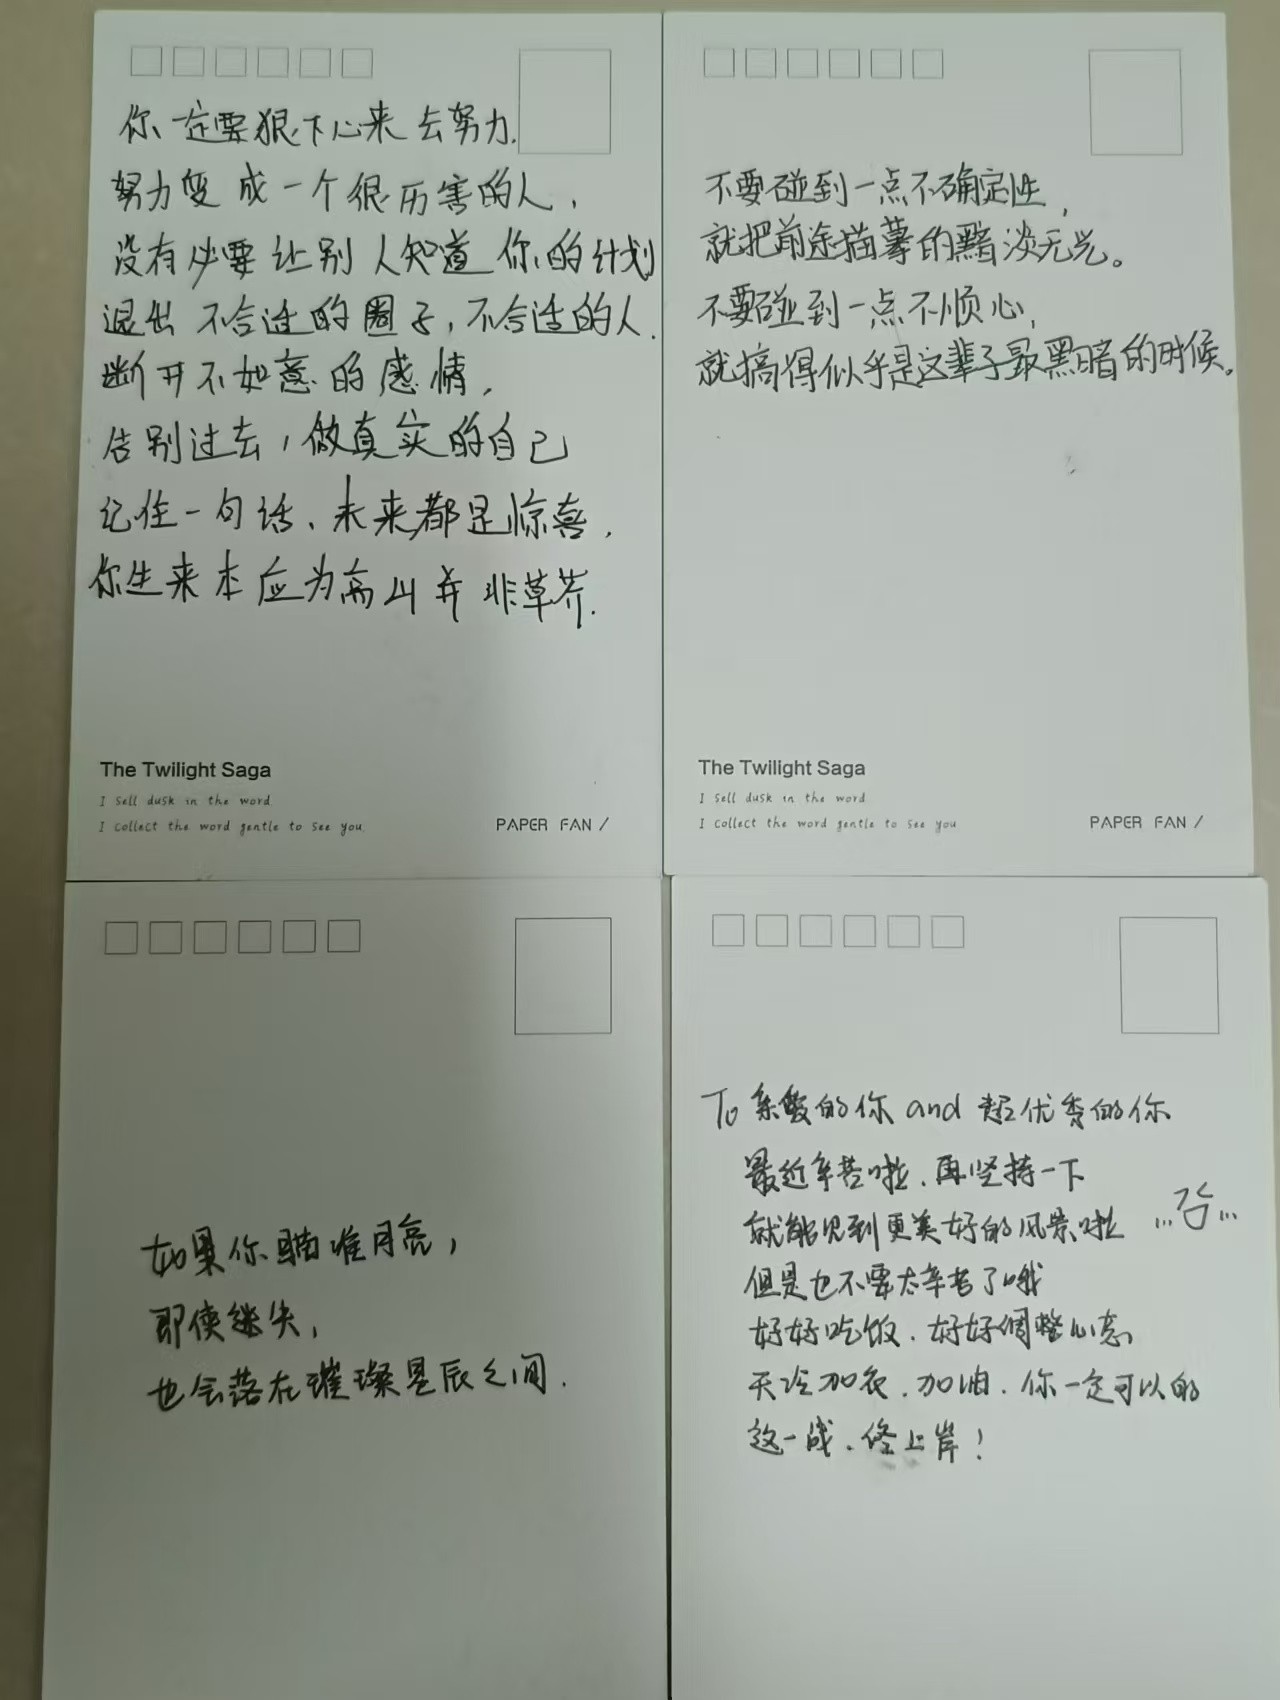 你一定要狠下心来去努力.
努力变成一个很历害的人,
没有必要让别人知道你的计划
退出不合适的圈子,不合适的人.
断开不如意的感情,
告别过去,做真实的自己
记住一句话、未来都是惊喜.
你生来本应为高山并非草芥.
The Twilight Saga
I sell dusk in the word
I collect the word gentle to see you.
PAPER FAN /
不要碰到一点不确定性,
就把前途描摹的黯淡无光。
不要碰到一点不顺心,
就搞得似乎是这辈子最黑暗的时候。
The Twilight Saga
I sell dusk in the word
I collect the word gentle to see you
PAPER FAN /
如果你瞄准月亮,
即使迷失,
也会落在璀璨星辰之间.
To 亲爱的你 and 超优秀的你
最近辛苦啦.再坚持一下
就能见到更美好的风景啦
但是也不要太辛苦了哦
好好吃饭.好好调整心态
天冷加衣.加油.你一定可以的
这一战.终上岸!